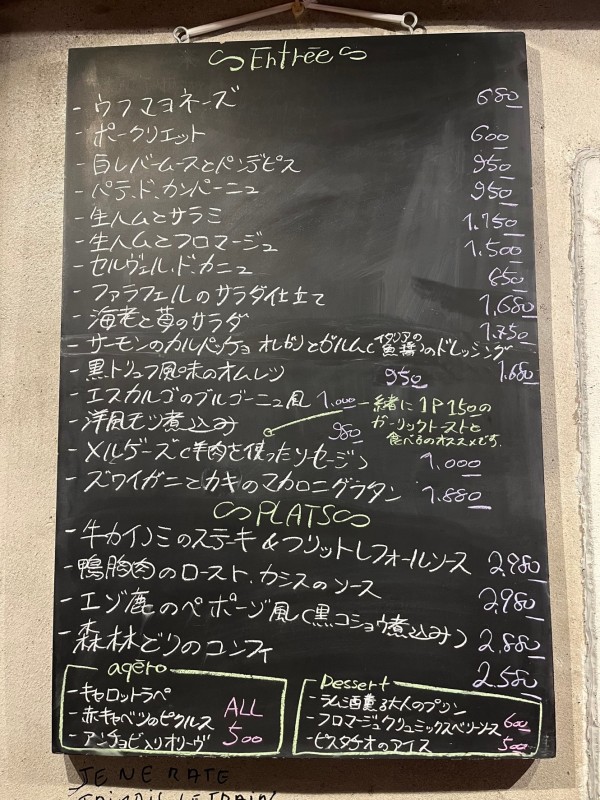 Entrée
- ウフマヨネーズ 680
- ポークリエット 600
- 白レバームースとパンデピス 950
- パテ.ド.カンパーニュ 950
- 生ハムとサラミ 1.150
- 生ハムとフロマージュ 1.500
- セルヴェル.ド.カニュ 850
- ファラフェルのサラダ仕立て 1,680
- 海老と苺のサラダ 1.750
- サーモンのカルパッチョ オレガノとガルム(イタリアの魚醤)のドレッシング 1.680
- 黒トリュフ風味のオムレツ 950
- エスカルゴのブルゴーニュ風 1.000
一緒に 1P 150の
ガーリックトーストと
食べるのオススメです.
- 洋風モツ煮込み 980
- メルゲーズ(羊肉を使ったソセージ) 1.000
- ズワイガニとカキのマカロニグラタン 1.880
PLATS
- 牛カイノミのステーキ & フリット レフォールソース 2,980
- 鴨胸肉のロースト.カシスのソース 2,980
- エゾ鹿のペポーゾ風(黒コショウ煮込み) 2,880
- 森林どりのコンフィ 2.580
apéro
- キャロットラペ
- 赤キャベツのピクルス
- アンチョビ入りオリーヴ
ALL
500
Dessert
- ラム酒薫る大人のプリン
- フロマージュクリュミックスベリーソース 600
- ピスタチオのアイス 500
JE NE RATE